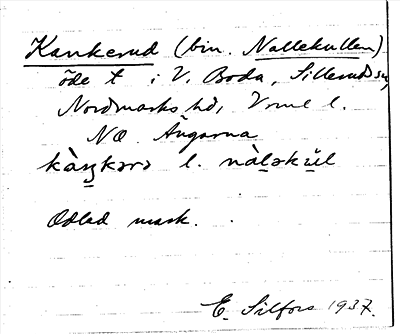 Kankerud (bin. Nallekullen)
öde t i V. Boda, Silleruds sn,
Nordmarks hd, Vrml l.
NO Ängarna
kàŋkərə l. nàləkŭl
Odlad mark.
E. Silfors 1937.